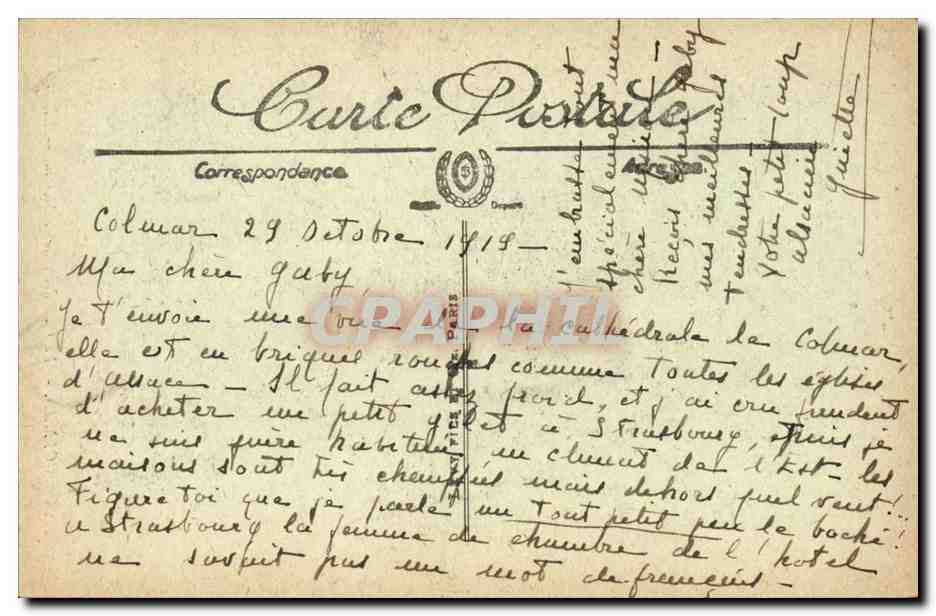 Carte Postale
Correspondance
Adresse
Colmar 29 Octobre 1919 -
Ma chère Gaby,
Je t'envoie une vue de la cathédrale de Colmar,
elle est en briques rouges comme toutes les églises
d'Alsace - Il fait assez froid, et j'ai cru prudent
d'acheter un petit gilet à Strasbourg, puis je
ne suis guère habituée un climat de l'Est - les
maisons sont très chauffées mais dehors quel vent!..
Figure toi que je parle un tout petit peu le boche!
à Strasbourg la femme de chambre de l'hotel
ne savait pas un mot de français -
J'embrasse tout
spécialement ma
chère
Reçois chère Gaby
mes meilleures
tendresses
Votre petit loup
alsacien
Guietta
PARIS
CRAPHIL